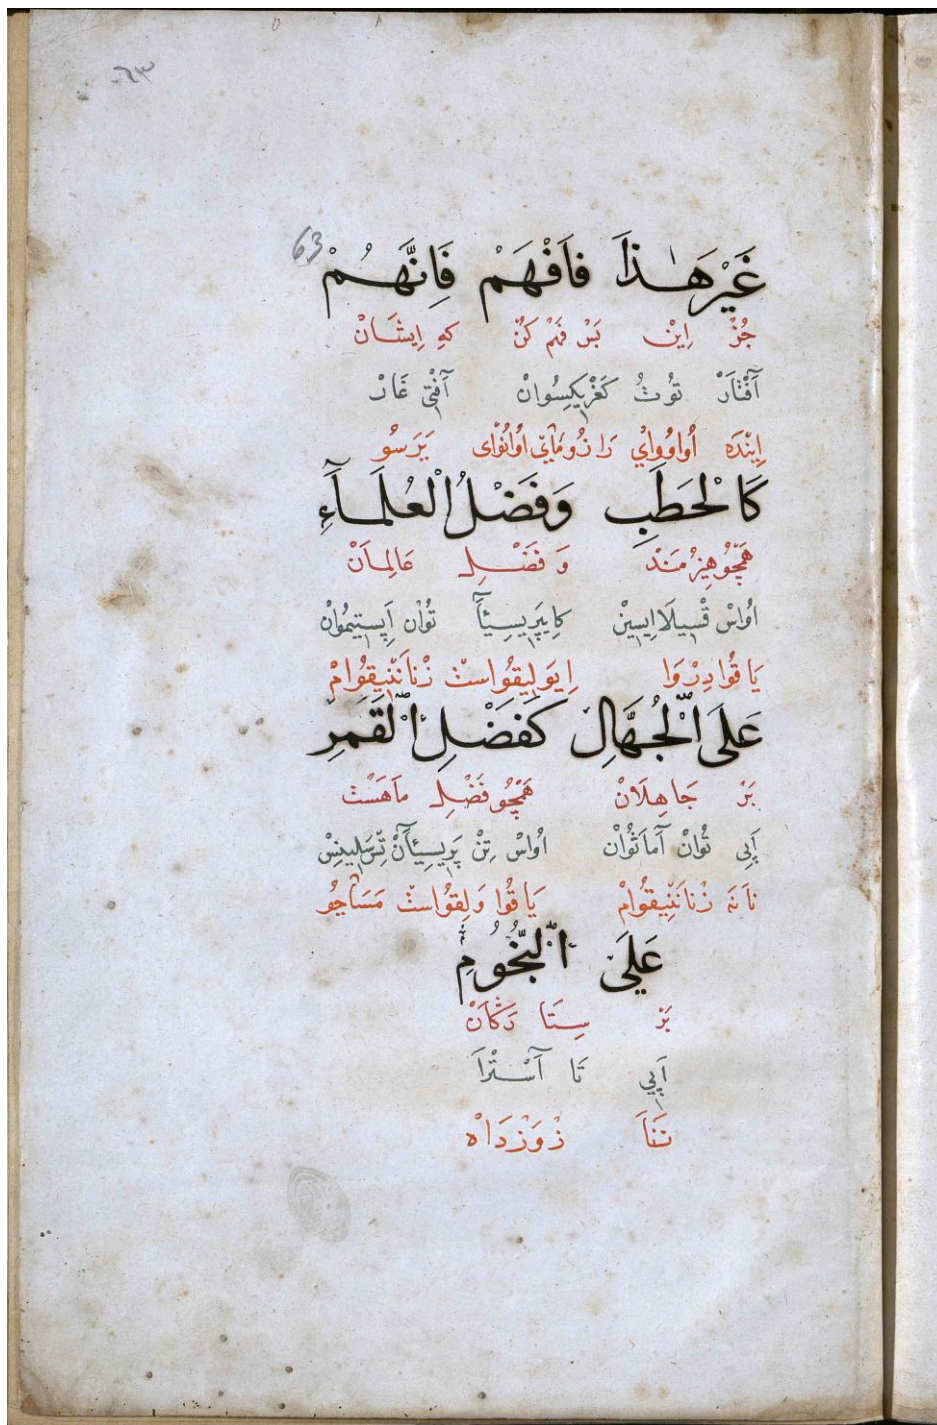 ٦٣
63
غَيْرَ هٰذَا فَافْهَمْ فَاِنَّهُمْ
جُزْ اِيْن بَسْ فَهْم كُنْ كِه اِيشَانْ
آفْتَارْ تُوتُ كَغْرِيكِسُوانْ آفْتِى غَارْ
اِيْنَدَه
كَالْحَطَبِ وَفَضْلُ الْعُلَمَآءِ
هَمْچُو هِيزُمَنْد وَ فَضْلِ عَالِمَانْ
اُوَاسْ تُوانْ اَپِسْتِيمُوانْ
يَاقُو ادِرْوَا اِيوَلِيقُواسْتْ زْنَانَنِيقُوامْ
عَلَى الْجُهَّالِ كَفَضْلِ الْقَمَرِ
بَرْ جَاهِلَانْ هَمْچُو فَضْلِ مَاهَسْتْ
اَپِى تُوانْ آمَاثُوانْ اُوَاسْ تِنْ پَرِيسِيئَآنْ تِسْ سَلِينِسْ
نَانَه زْنَانَنِيقُوامْ يَاقُوا وَلِقُواسْتْ مَسَاچُو
عَلَى النُّجُومِ
بَرْ سِتَا رَگَانْ
اَپِي تَا آسْتْرَا
نَنَا زْوَزْدَاه